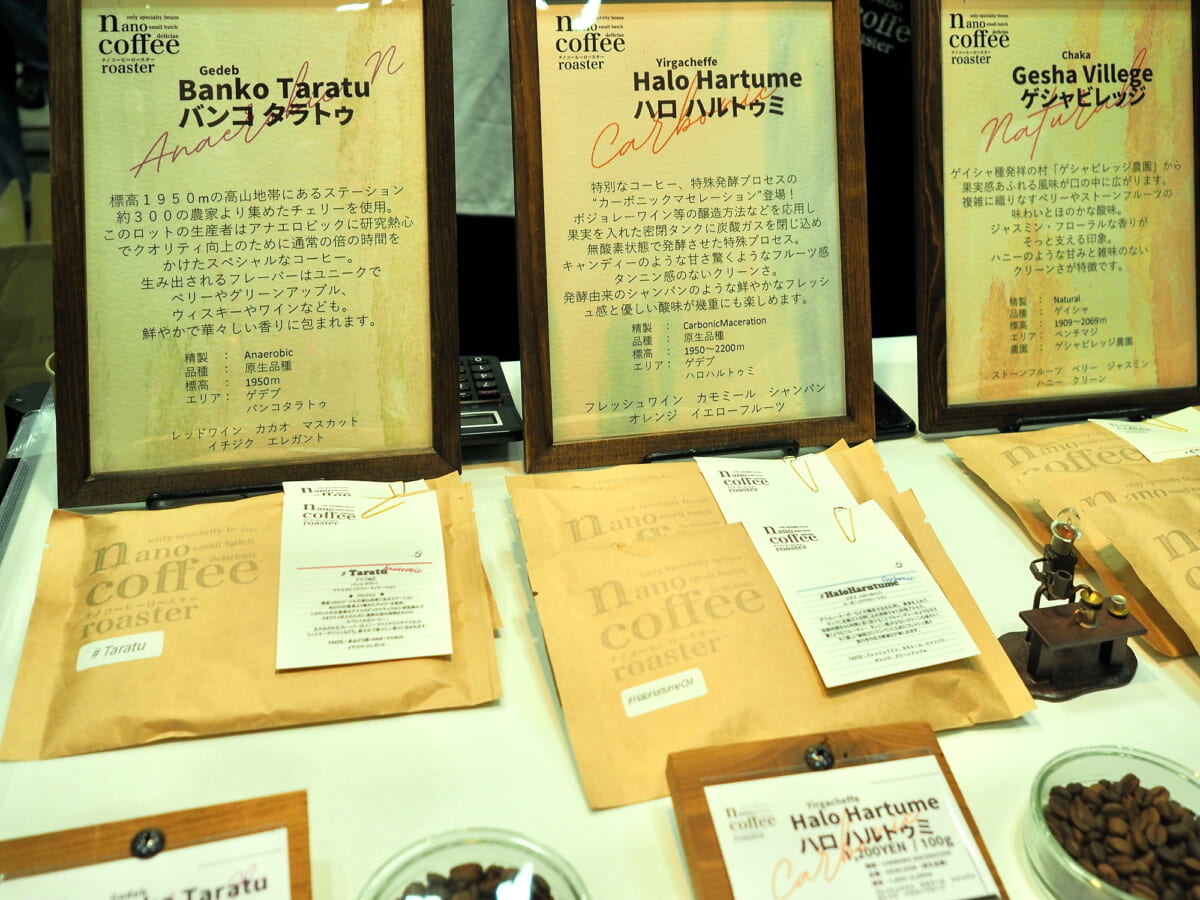 only specialty beans
nano small batch
delicias
coffee
ナノコーヒーロースター
roaster
Gedeb
Banko Taratu
バンコ タラトゥ
Anaerobic N
標高1950mの高山地帯にあるステーション
約300の農家より集めたチェリーを使用。
このロットの生産者はアナエロビックに研究熱心
でクオリティ向上のために通常の倍の時間を
かけたスペシャルなコーヒー。
生み出されるフレーバーはユニークで
ベリーやグリーンアップル、
ウィスキーやワインなども。
鮮やかで華々しい香りに包まれます。
精製 : Anaerobic
品種 : 原生品種
標高 : 1950m
エリア: ゲデブ
バンコタラトゥ
レッドワイン カカオ マスカット
イチジク エレガント
nano small batch
coffee
ナノコーヒーロースター
roaster
Yirgacheffe
Halo Hartume
ハロ ハルトゥミ
Carbonic
特別なコーヒー、特殊発酵プロセスの
“カーボニックマセレーション”登場!
ボジョレーワイン等の醸造方法などを応用し
果実を入れた密閉タンクに炭酸ガスを閉じ込め
無酸素状態で発酵させた特殊プロセス。
キャンディーのような甘さ驚くようなフルーツ感
タンニン感のないクリーンさ。
発酵由来のシャンパンのような鮮やかなフレッシ
ュ感と優しい酸味が幾重にも楽しめます。
精製 : CarbonicMaceration
品種 : 原生品種
標高 : 1950～2200m
エリア: ゲデブ
ハロハルトゥミ
フレッシュワイン カモミール シャンパン
オレンジ イエローフルーツ
only specialty beans
nano small batch
delicias
coffee
ナノコーヒーロースター
roaster
Chaka
Gesha Villege
ゲシャビレッジ
Natural
ゲイシャ種発祥の村「ゲシャビレッジ農園」から
果実感あふれる風味が口の中に広がります。
複雑に織りなすベリーやストーンフルーツの
味わいとほのかな酸味。
ジャスミン・フローラルな香りが
そっと支える印象。
ハニーのような甘みと雑味のない
クリーンさが特徴です。
精製 : Natural
品種 : ゲイシャ
標高 : 1909～2069m
エリア: ベンチマジ
農園 : ゲシャビレッジ農園
ストーンフルーツ ベリー ジャスミン
ハニー クリーン
coffee
roaster
only specialty beans
nano small batch
delicious
coffee
ナノコーヒーロースター
roaster
# Taratu
nano
coffee
roaster
# Taratu Anaerobic
only specialty beans
nano small batch
coffee
ナノコーヒーロースター
roaster
#HaloHartumeCM
nano
coffee
roaster
nano
coffee
roaster
#HaloHarutume Carbonic
nano
coffee
only specialty beans
nano
coffee
Gedeb
Taratu
nano
coffee
roaster
Yirgacheffe
Halo Hartume
ハロ ハルトゥミ
Carbonic
,200YEN / 100g